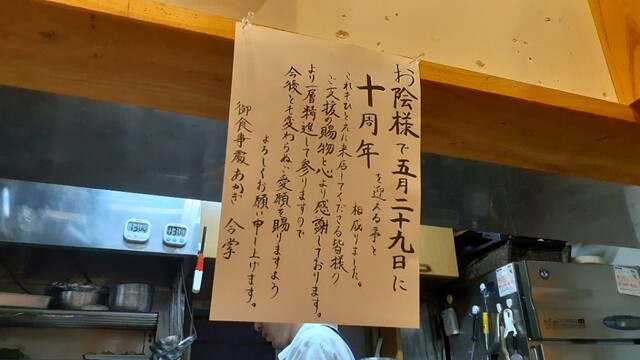 お陰様で五月二十九日に
十周年
を迎える事と
相成りました。
これもひとえに来店してくださる皆様の
ご支援の賜物と心より感謝しております。
より一層精進して参りますので
今後とも変わらぬご愛顧を賜りますよう
よろしくお願い申し上げます。
御食事處 あかぎ 今掌